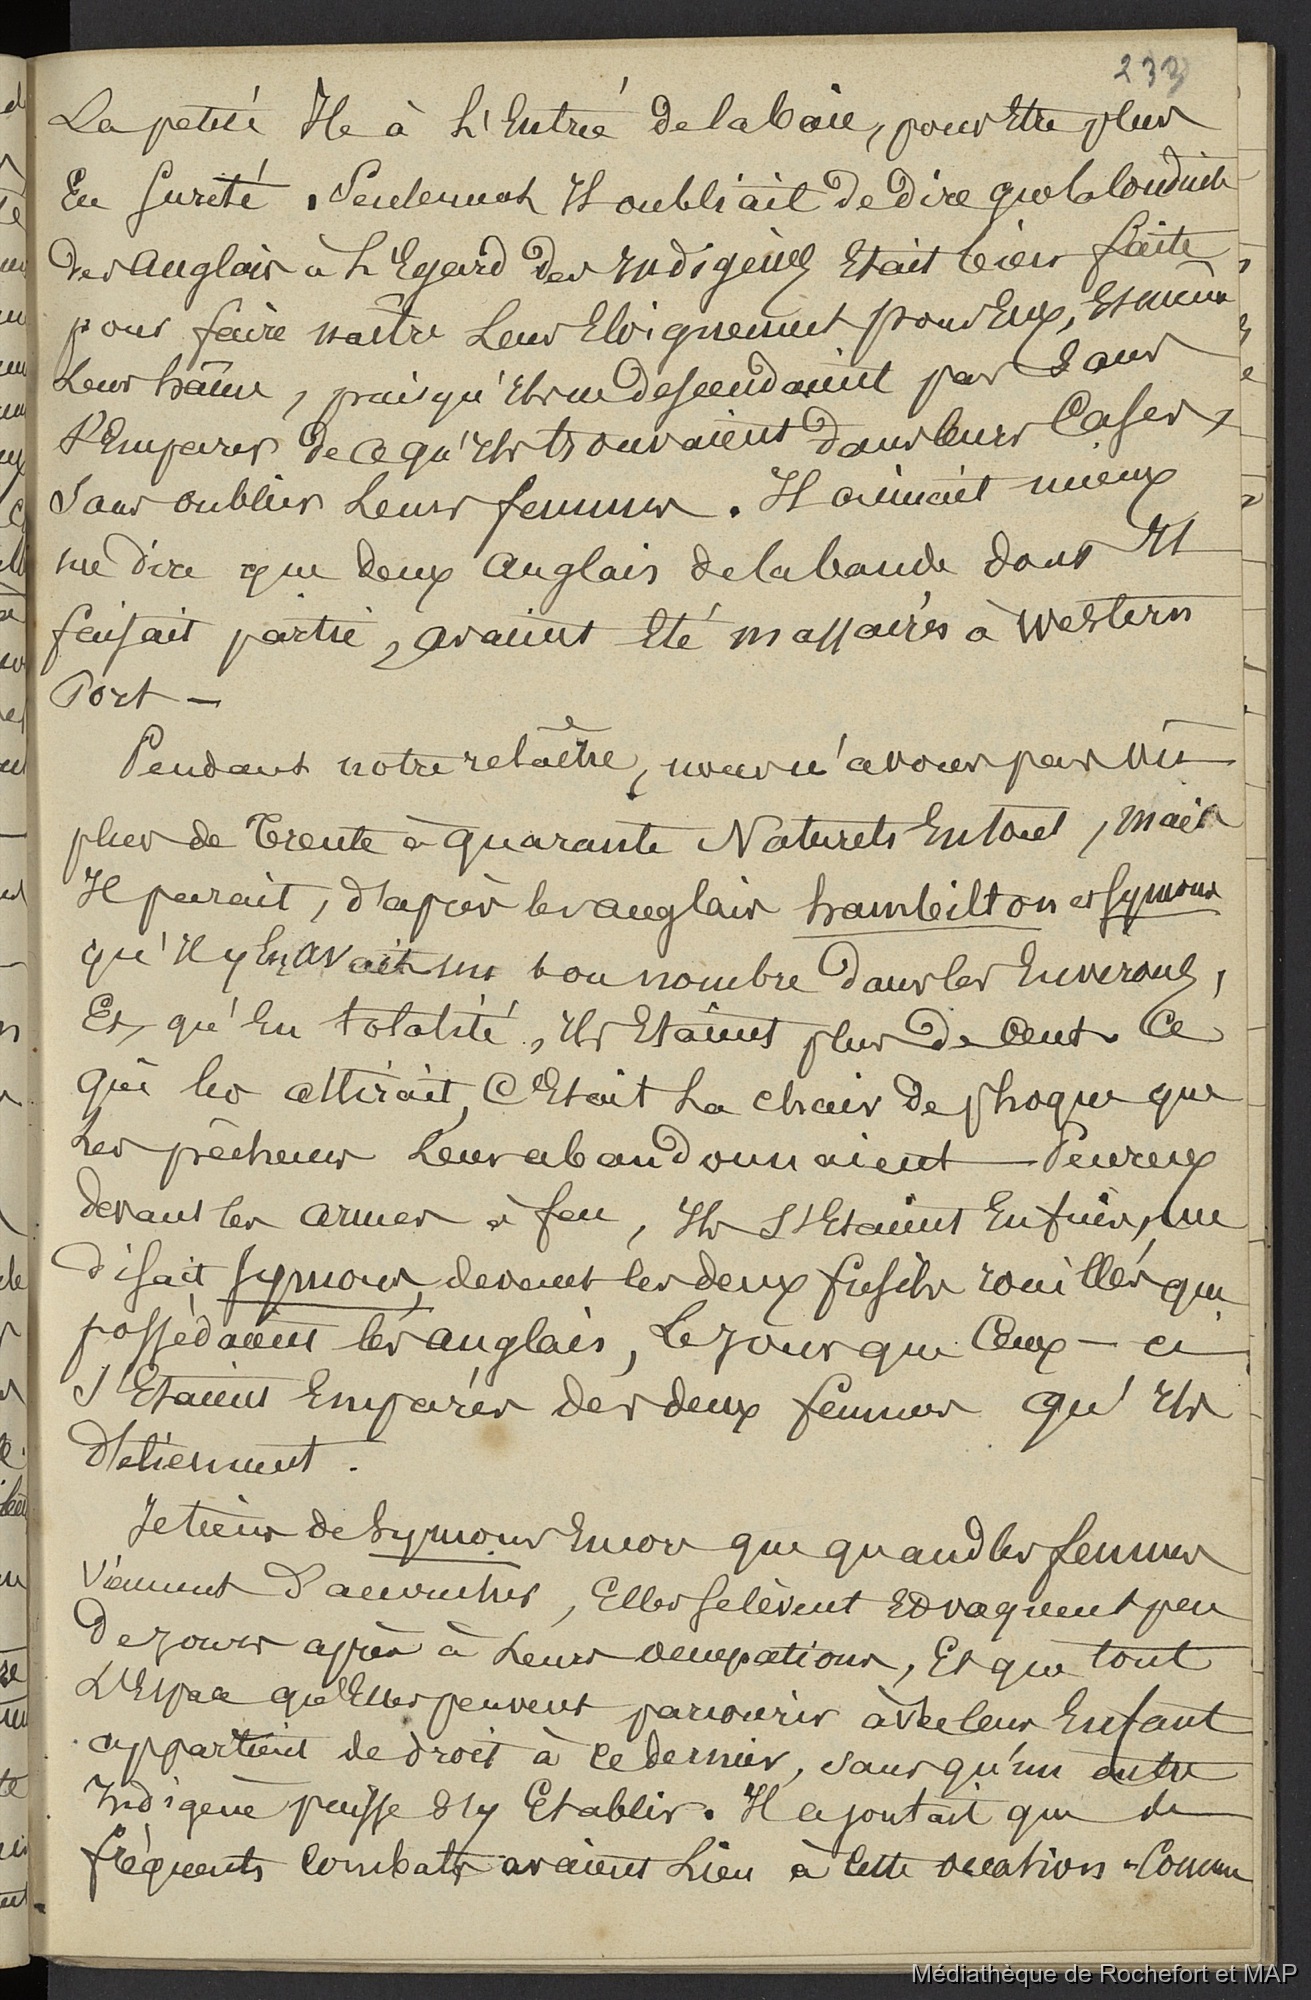 233
La petite Ile à L'Entrée de la baie, pour Etre plus
En sureté. Seulement Il oubliait de dire que la Conduite
des Anglais à L'Egard des Indigènes Etait bien faite
pour faire naître Leur Eloignement pour Eux, Et même
Leur haine, puisqu'Ils ne descendaient pas sans
S'Emparer de ce qu'Ils trouvaient dans leurs Cases,
Sans oublier Leurs femmes. Il aimait mieux
me dire que deux Anglais de la bande dont Il
faisait partie, avaient Eté massacrés à Western
Port —
Pendant notre relâche, nous n'avons pas vu
plus de Trente à quarante Naturels En tout, mais
Il parait, d'après les anglais hambilton et Symour
qu'Il y En avait un bon nombre dans les Environs,
Et, qu'En totalité, Ils Etaient plus de Cent. Ce
qui les attirait, C'Etait La chair de phoque que
Les pêcheurs Leur abandonnaient — Peureux
devant les armes à feu, Ils S'Etaient Enfuis, me
disait Symour, devant les deux fusils rouillés que
possédaient les anglais, Le jour que Ceux-ci
S'Etaient Emparés des deux femmes qu'Ils
détiennent.
Je tiens de Symour Encor que quand les femmes
viennent d'accoucher, Elles se lèvent Et vaquent peu
de jours après à Leurs occupations, Et que tout
L'Espace qu'Elles peuvent parcourir avec leur Enfant
appartient de droit à ce dernier, sans qu'un autre
Indigène puisse s'y Etablir. Il ajoutait que de
fréquents Combats avaient Lieu à Cette occasion. Comme
Médiathèque de Rochefort et MAP